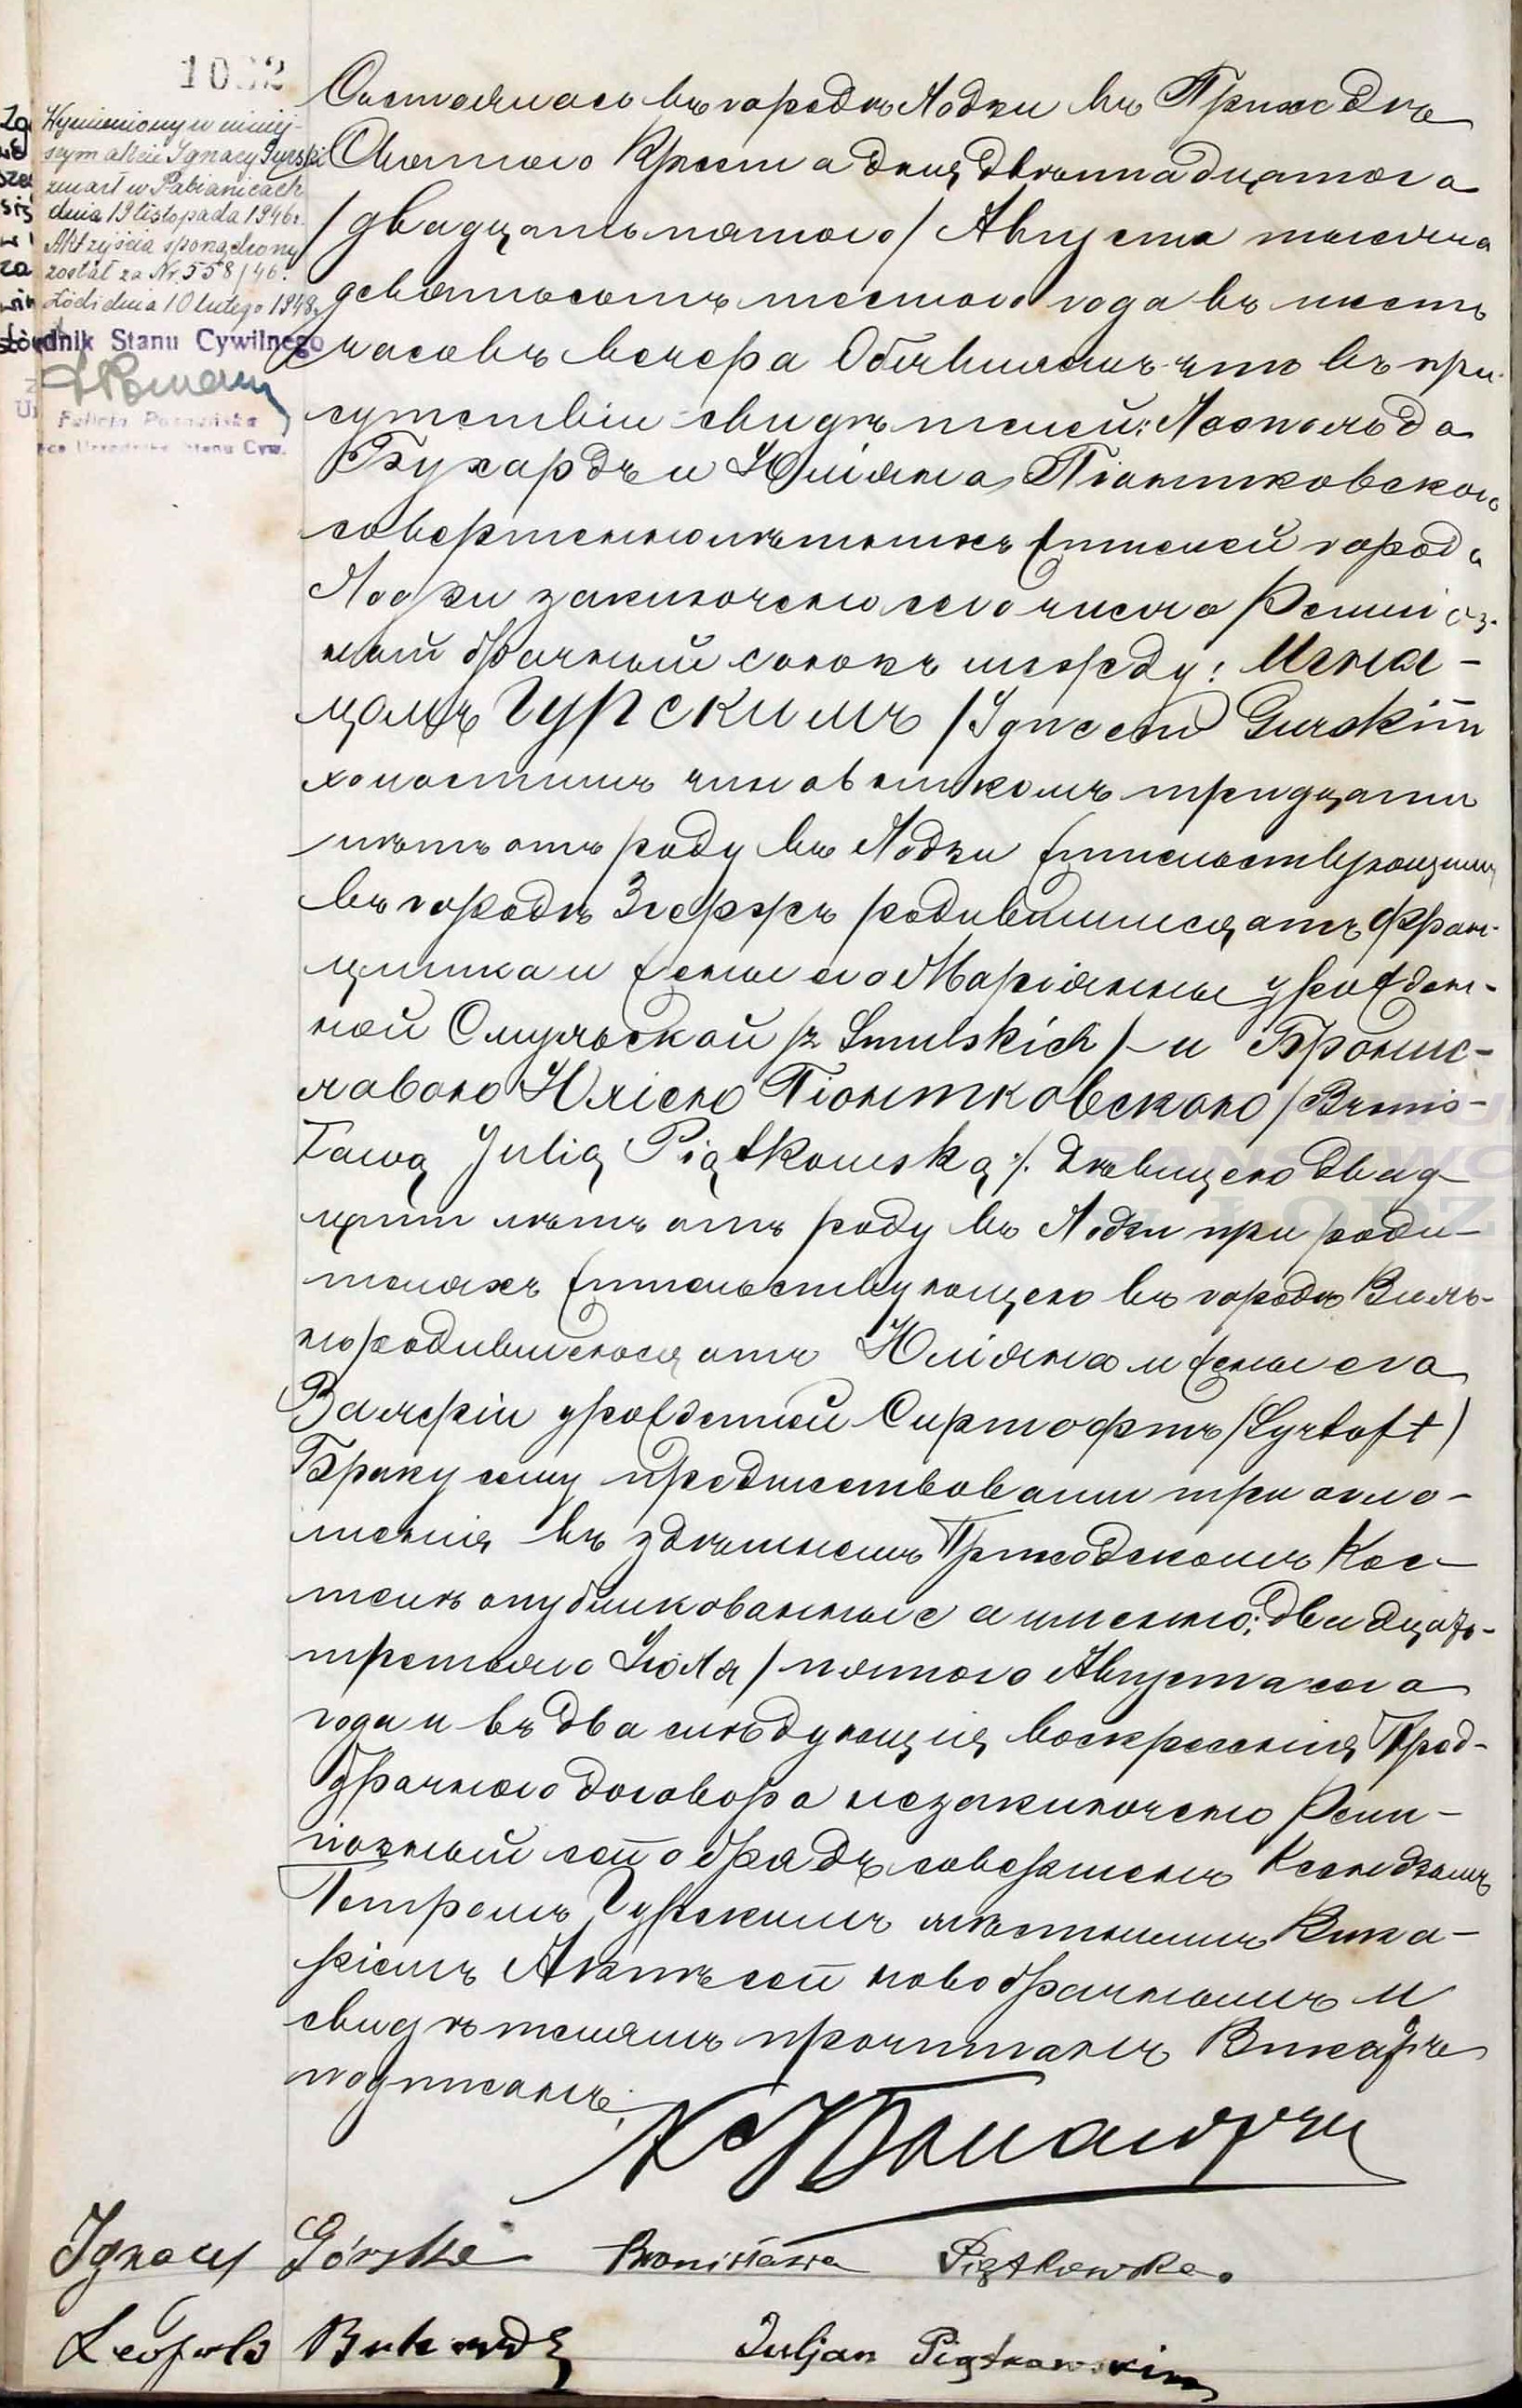 1032
Wymieniony w niniej-
szym akcie Ignacy Gurski
zmarł w Pabianicach
dnia 19 listopada 1946 r.
Akt zejścia sporządzony
został za Nr. 558/46.
Łódź dnia 10 lutego 1948
Stanu Cywilnego
Состоялось въ городѣ Лодзи въ Приходѣ
Святого Креста дня двѣнадцатого
/двадцать пятого/ Августа тысяча
девятьсотъ шестого года въ шесть
часовъ вечера Объявляемъ что въ при-
сутствіи свидѣтелей: Леопольда
Бухардъ и Юліана Піонтковского
совершеннолѣтнихъ жителей города
Лодзи заключенъ сего числа Религіоз-
ный брачный союзъ между: Игна-
цомъ Гурскимъ /Ignacym Gurskim
холостымъ чиновникомъ тридцати
лѣтъ отъ роду въ Лодзи жительствующимъ
въ городѣ Згержѣ родившимся отъ Фран-
цишка и жены его Маріанны урожден-
ной Смульской /z Smulskich/ - и Бронис-
лавою Юліею Піонтковскою /Broni-
sławą Julią Piątkowską/. дѣвицею двад-
цати лѣтъ отъ роду въ Лодзи при роди-
теляхъ жительствующею въ городѣ Виль-
но родившеюся отъ Юліана и жены его
Валеріи урожденной Сиртофтъ /Syrtoft/
Браку сему предшествовали три огло-
шенія въ здѣшнемъ Приходскомъ Кос-
телѣ опубликованные а именно: двадцать-
третьяго Іюля / пятого Августа сего
года и въ два слѣдующія воскресенія Пред-
брачного договора незаключено Рели-
гіозный сей обрядъ совершенъ Ксендзомъ
Петромъ Гурскимъ мѣстнымъ Вика-
ріемъ Актъ сей новобрачнымъ и
свидѣтелямъ прочитанъ
подписанъ.
Ignacy Górski Bronisława Piątkowska.
Leopold Juljan Piątkowski